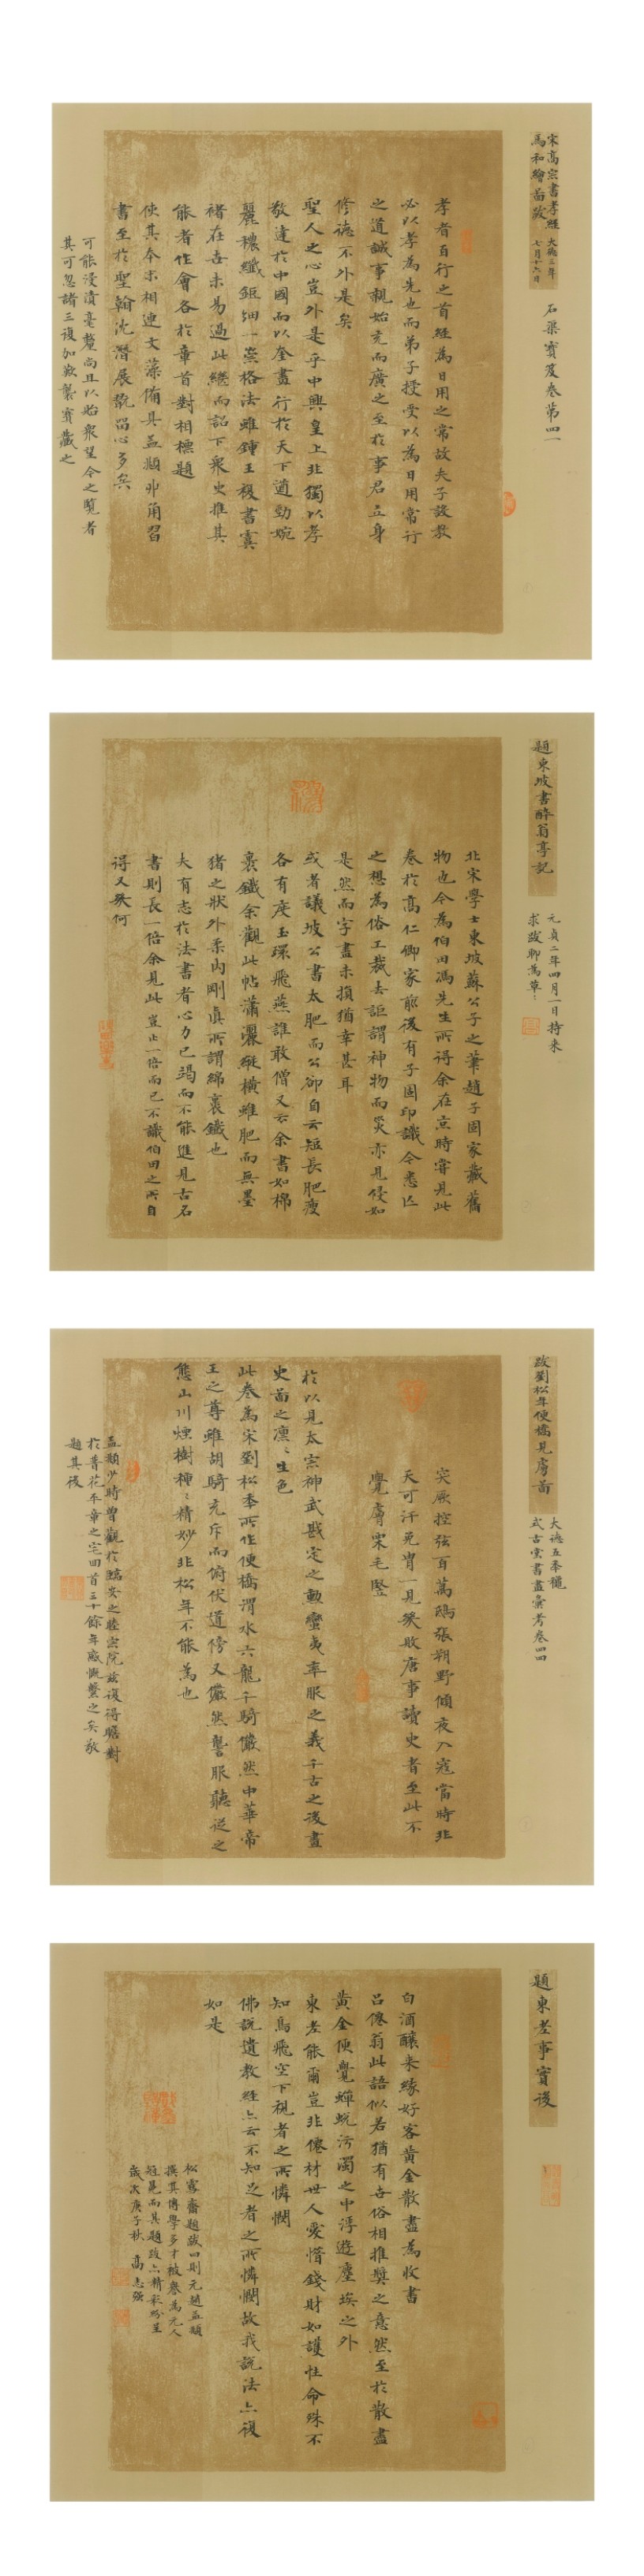 宋高宗書孝經
馬和繪圖跋
大德三年
七月十六日
石渠寶笈卷第四一
孝者百行之首經為日用之常故夫子設教
必以孝為先也而弟子授受以為日用常行
之道誠事親始充而廣之至於事君立身
修德不外是矣
聖人之心豈外是乎中興皇上非獨以孝
敬達於中國而以奎畫行於天下遒勁婉
麗穠纖鉅細一無格法雖鍾王復書寘
褚在去未易過此繼而詔下眾史推其
能者作會各於章首對相標題
使其各求相連文藻備具孟頫丱角習
書至於聖翰沈潛展翫留心多矣
可能浸漬毫釐尚且以貽眾望今之覽者
其可忽諸三復加歎襲寶藏之
題東坡書醉翁亭記
元貞二年四月一日持來
求跋聊為草草
北宋學士東坡蘇公子之筆趙子固家藏舊
物也今為伯田馮先生所得余在京時嘗見此
卷於高仁卿家前後有子固印識今悉亡
之想為俗工裁去詎謂神物而災亦見侵如
是然而字畫未損猶幸甚耳
或者議坡公書太肥而公卻自云短長肥瘦
各有度玉環飛燕誰敢憎又云余書如棉
裹鐵余觀此帖瀟灑縱橫雖肥而無墨
猪之狀外柔內剛真所謂綿裹鐵也
夫有志於法書者心力已竭而不能進見古石
書則長一倍余見此豈止一倍而已不識伯田之所自
得又殊何
跋劉松年便橋見虜圖
大德五年穐
式古堂書畫彙考卷四四
突厥控弦百萬鴟張朔野傾夜入寇當時非
天可汗免胄一見幾敗唐事讀史者至此不
覺膚栗毛豎
於以見太宗神武戡定之勳蠻夷率服之義千古之後畫
史圖之凛凛生色
此卷為宋劉松年所作便橋渭水六龍千騎儼然中華帝
王之尊雖胡騎充斥而俯伏道傍又儼然讋服聽從之
態山川煙樹種種精妙非松年不能為也
孟頫少時曾觀於臨安之睦宗院茲復得瞻對
於普花平章之宅回首三十餘年感慨繫之矣敬
題其後
題東老事實後
白酒釀來緣好客黃金散盡為收書
呂僊翁此語似若猶有世俗相推獎之意然至於散盡
黃金便覺蟬蛻污濁之中浮遊塵埃之外
東老能爾豈非僊材世人愛惜錢財如護性命殊不
知鳥飛空下視者之所憐憫
佛說遺教經亦云不知足者之所憐憫故我說法亦復
如是
松雪齋題跋四則元趙孟頫
撰其博學多才被譽為元人
冠冕而其題跋亦精彩紛呈
歲次庚子秋 高志強